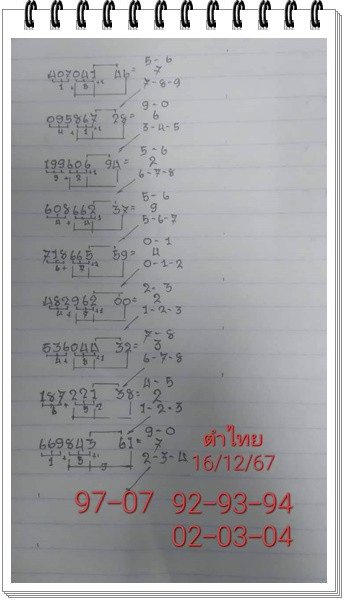 5-6
407041 46= 7
1+5+2 7-8-9
9-0
095867 28= 6
4+1+2 3-4-5
5-6
199606 94= 2
6-7-8
5-6
608662 37= 9
5-6-7
0-1
718665 59= 4
0-1-2
2-3
482962 00= 2
1-2-3
7-8
536044 32= 3
6-7-8
4-5
187221 38= 2
1-2-3
9-0
669843 61= 7
2-3-4
ตำไทย
16/12/67
97-07 92-93-94
02-03-04